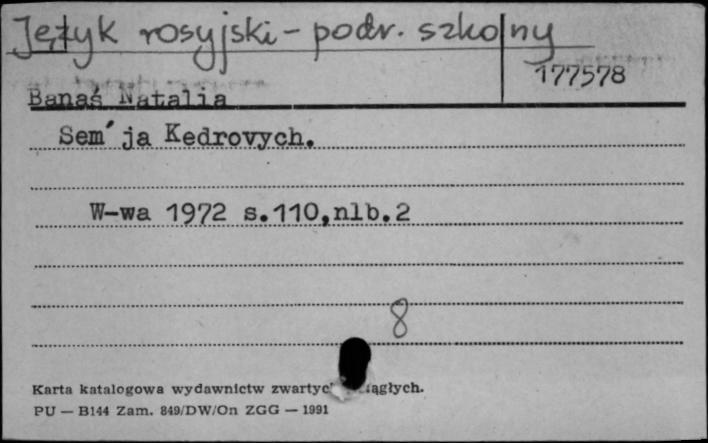 Język rosyjski - podr. szkolny
177578
Banaś Natalia
Sem´ja Kedrovych.
W-wa 1972 s.110,nlb.2
8
Karta katalogowa wydawnictw zwartych ciągłych.
PU — B144 Zam. 849/DW/On ZGG — 1991